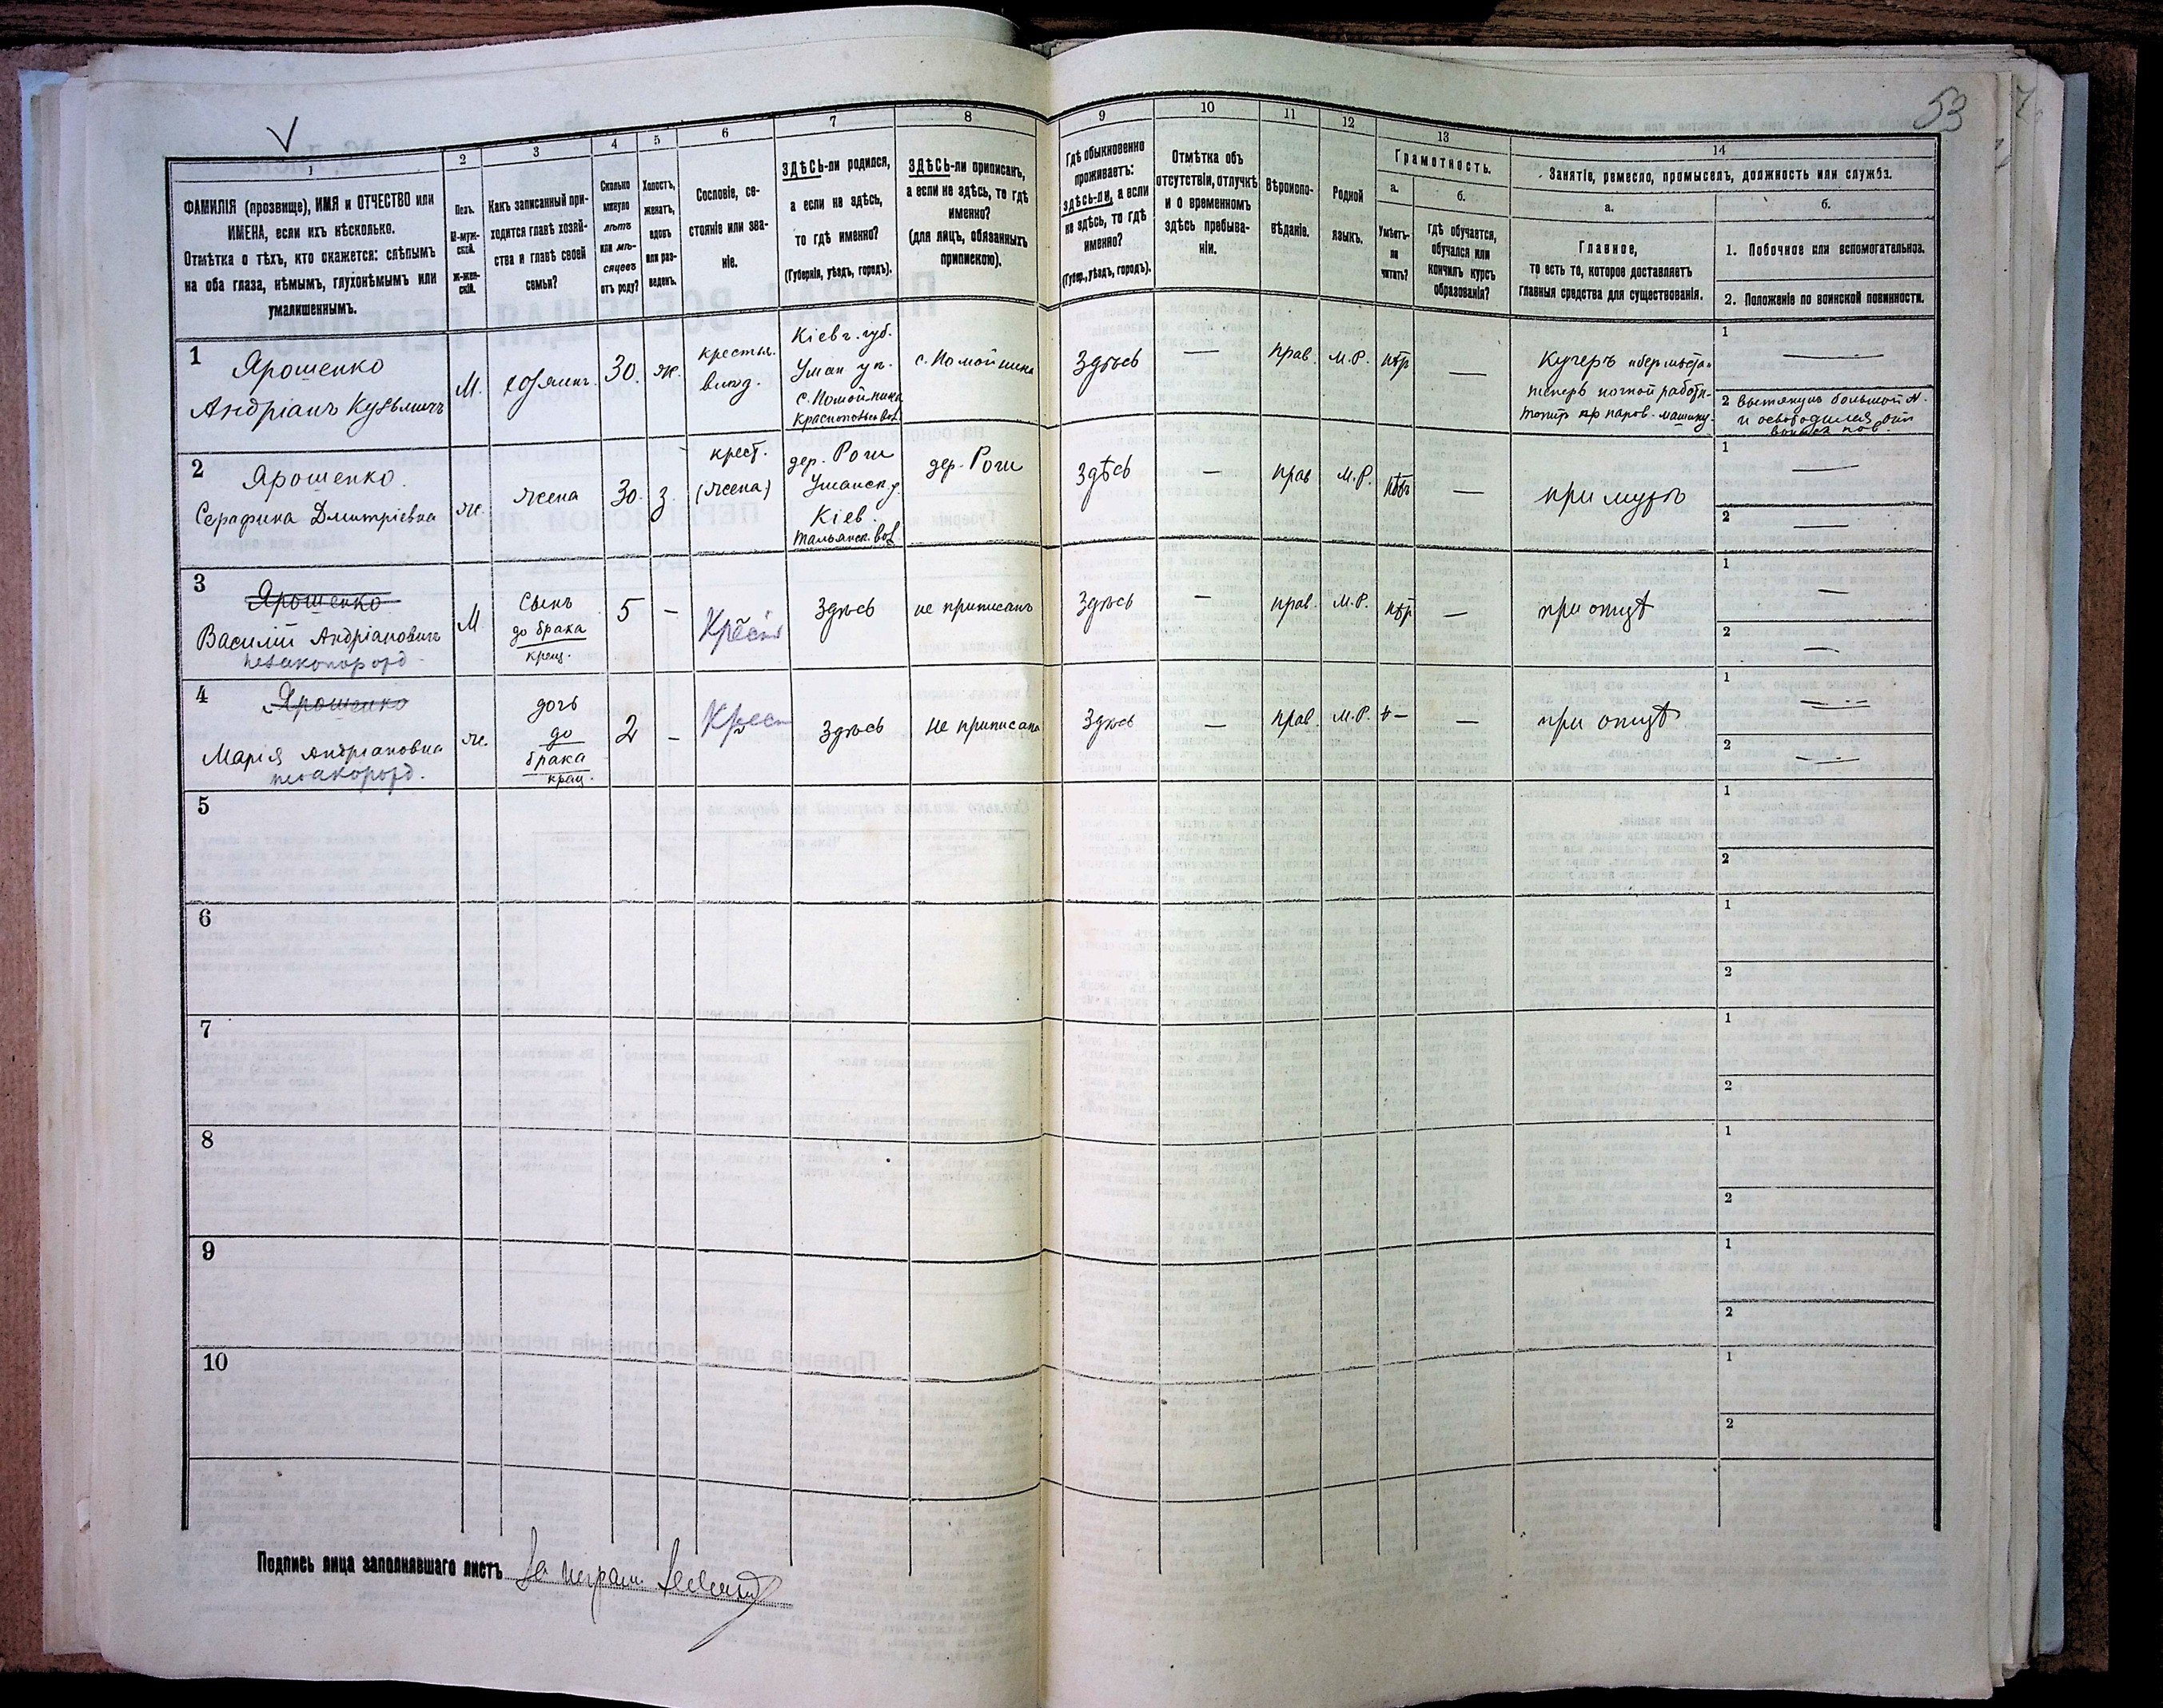 53
1
2
3
4
5
6
7
8
9
10
11
12
13
14
ФАМИЛІЯ (прозвище), ИМЯ и ОТЧЕСТВО или
ИМЕНА, если ихъ нѣсколько.
Отмѣтка о тѣхъ, кто окажется: слѣпымъ
на оба глаза, нѣмымъ, глухонѣмымъ или
умалишеннымъ.
Полъ.
М-муж-
ской.
Ж-жен-
скій.
Какъ записанный при-
ходится главѣ хозяй-
ства и главѣ своей
семьи?
Сколько
минуло
лѣтъ
или мѣ-
сяцевъ
отъ роду?
Холостъ,
женатъ,
вдовъ
или раз-
веденъ.
Сословіе, со-
стояніе или зва-
ніе.
ЗДѢСЬ-ли родился,
а если не здѣсь,
то гдѣ именно?
(Губернія, уѣздъ, городъ).
ЗДѢСЬ-ли приписанъ,
а если не здѣсь, то гдѣ
именно?
(для лицъ, обязанныхъ
припискою).
Гдѣ обыкновенно
проживаетъ:
здѣсь-ли, а если
не здѣсь, то гдѣ
именно?
(Губер., уѣздъ, городъ).
Отмѣтка объ
отсутствіи, отлучкѣ
и о временномъ
здѣсь пребыва-
ніи.
Вѣроиспо-
вѣданіе.
Родной
языкъ.
Грамотность.
а.
б.
Умѣетъ-
ли
читать?
гдѣ обучается,
обучался или
кончилъ курсъ
образованія?
Занятіе, ремесло, промыселъ, должность или служба.
а.
б.
Главное,
то есть то, которое доставляетъ
главныя средства для существованія.
1. Побочное или вспомогательное.
2. Положеніе по воинской повинности.
1
Ярошенко
Андріанъ Кузьмичъ
М.
хозяинъ.
30.
ж.
крестьян.
Кіевъ. губ.
Уман. уѣ.
с. Помойника
с. Помойника
Здѣсь
—
прав.
М.Р.
нѣт
—
Кучеръ
теперь
1
—
2
и освободился отъ
2
Ярошенко.
Серафима Дмитріевна
ж.
жена
30.
з.
крест.
(жена)
дер. Роги
Уманск. у.
Кіев.
Тальянск. вол.
дер. Роги
Здѣсь
—
прав
М.Р.
—
при мужѣ
1
—
2
—
3
Ярошенко
Василій Андріановичъ
незаконорожд.
М
сынъ
до брака
крещ.
5
—
Крест
Здѣсь
не приписанъ
Здѣсь
—
прав.
М.Р.
нѣт
—
при отцѣ
1
—
2
—
4
Ярошенко
Марія Андріановна
незакорожд.
ж.
дочь
до
брака
крещ.
2
—
Крест
Здѣсь
не приписана
Здѣсь
—
прав.
М.Р.
—
при отцѣ
1
—
2
—
5
1
2
6
1
2
7
1
2
8
1
2
9
1
2
10
1
2
Подпись лица заполнявшаго листъ